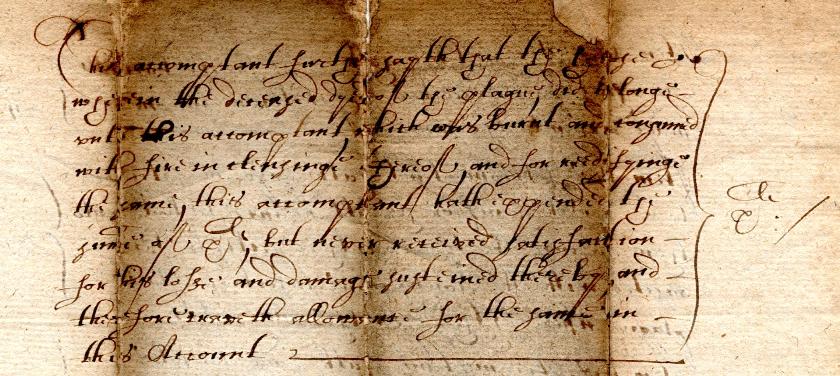 this accomptant further sayth that the house
wherein the deceased dyed of the plague, did belonge
unto this accomptant, which was burnt and consumed
with fire in clensinge thereof, and for reedifyinge
the same, this accomptant hath expended the
summe of, but never received satisfaction
for his losse and damage susteined thereby, and
therefore craveth allowance for the same in
this Account